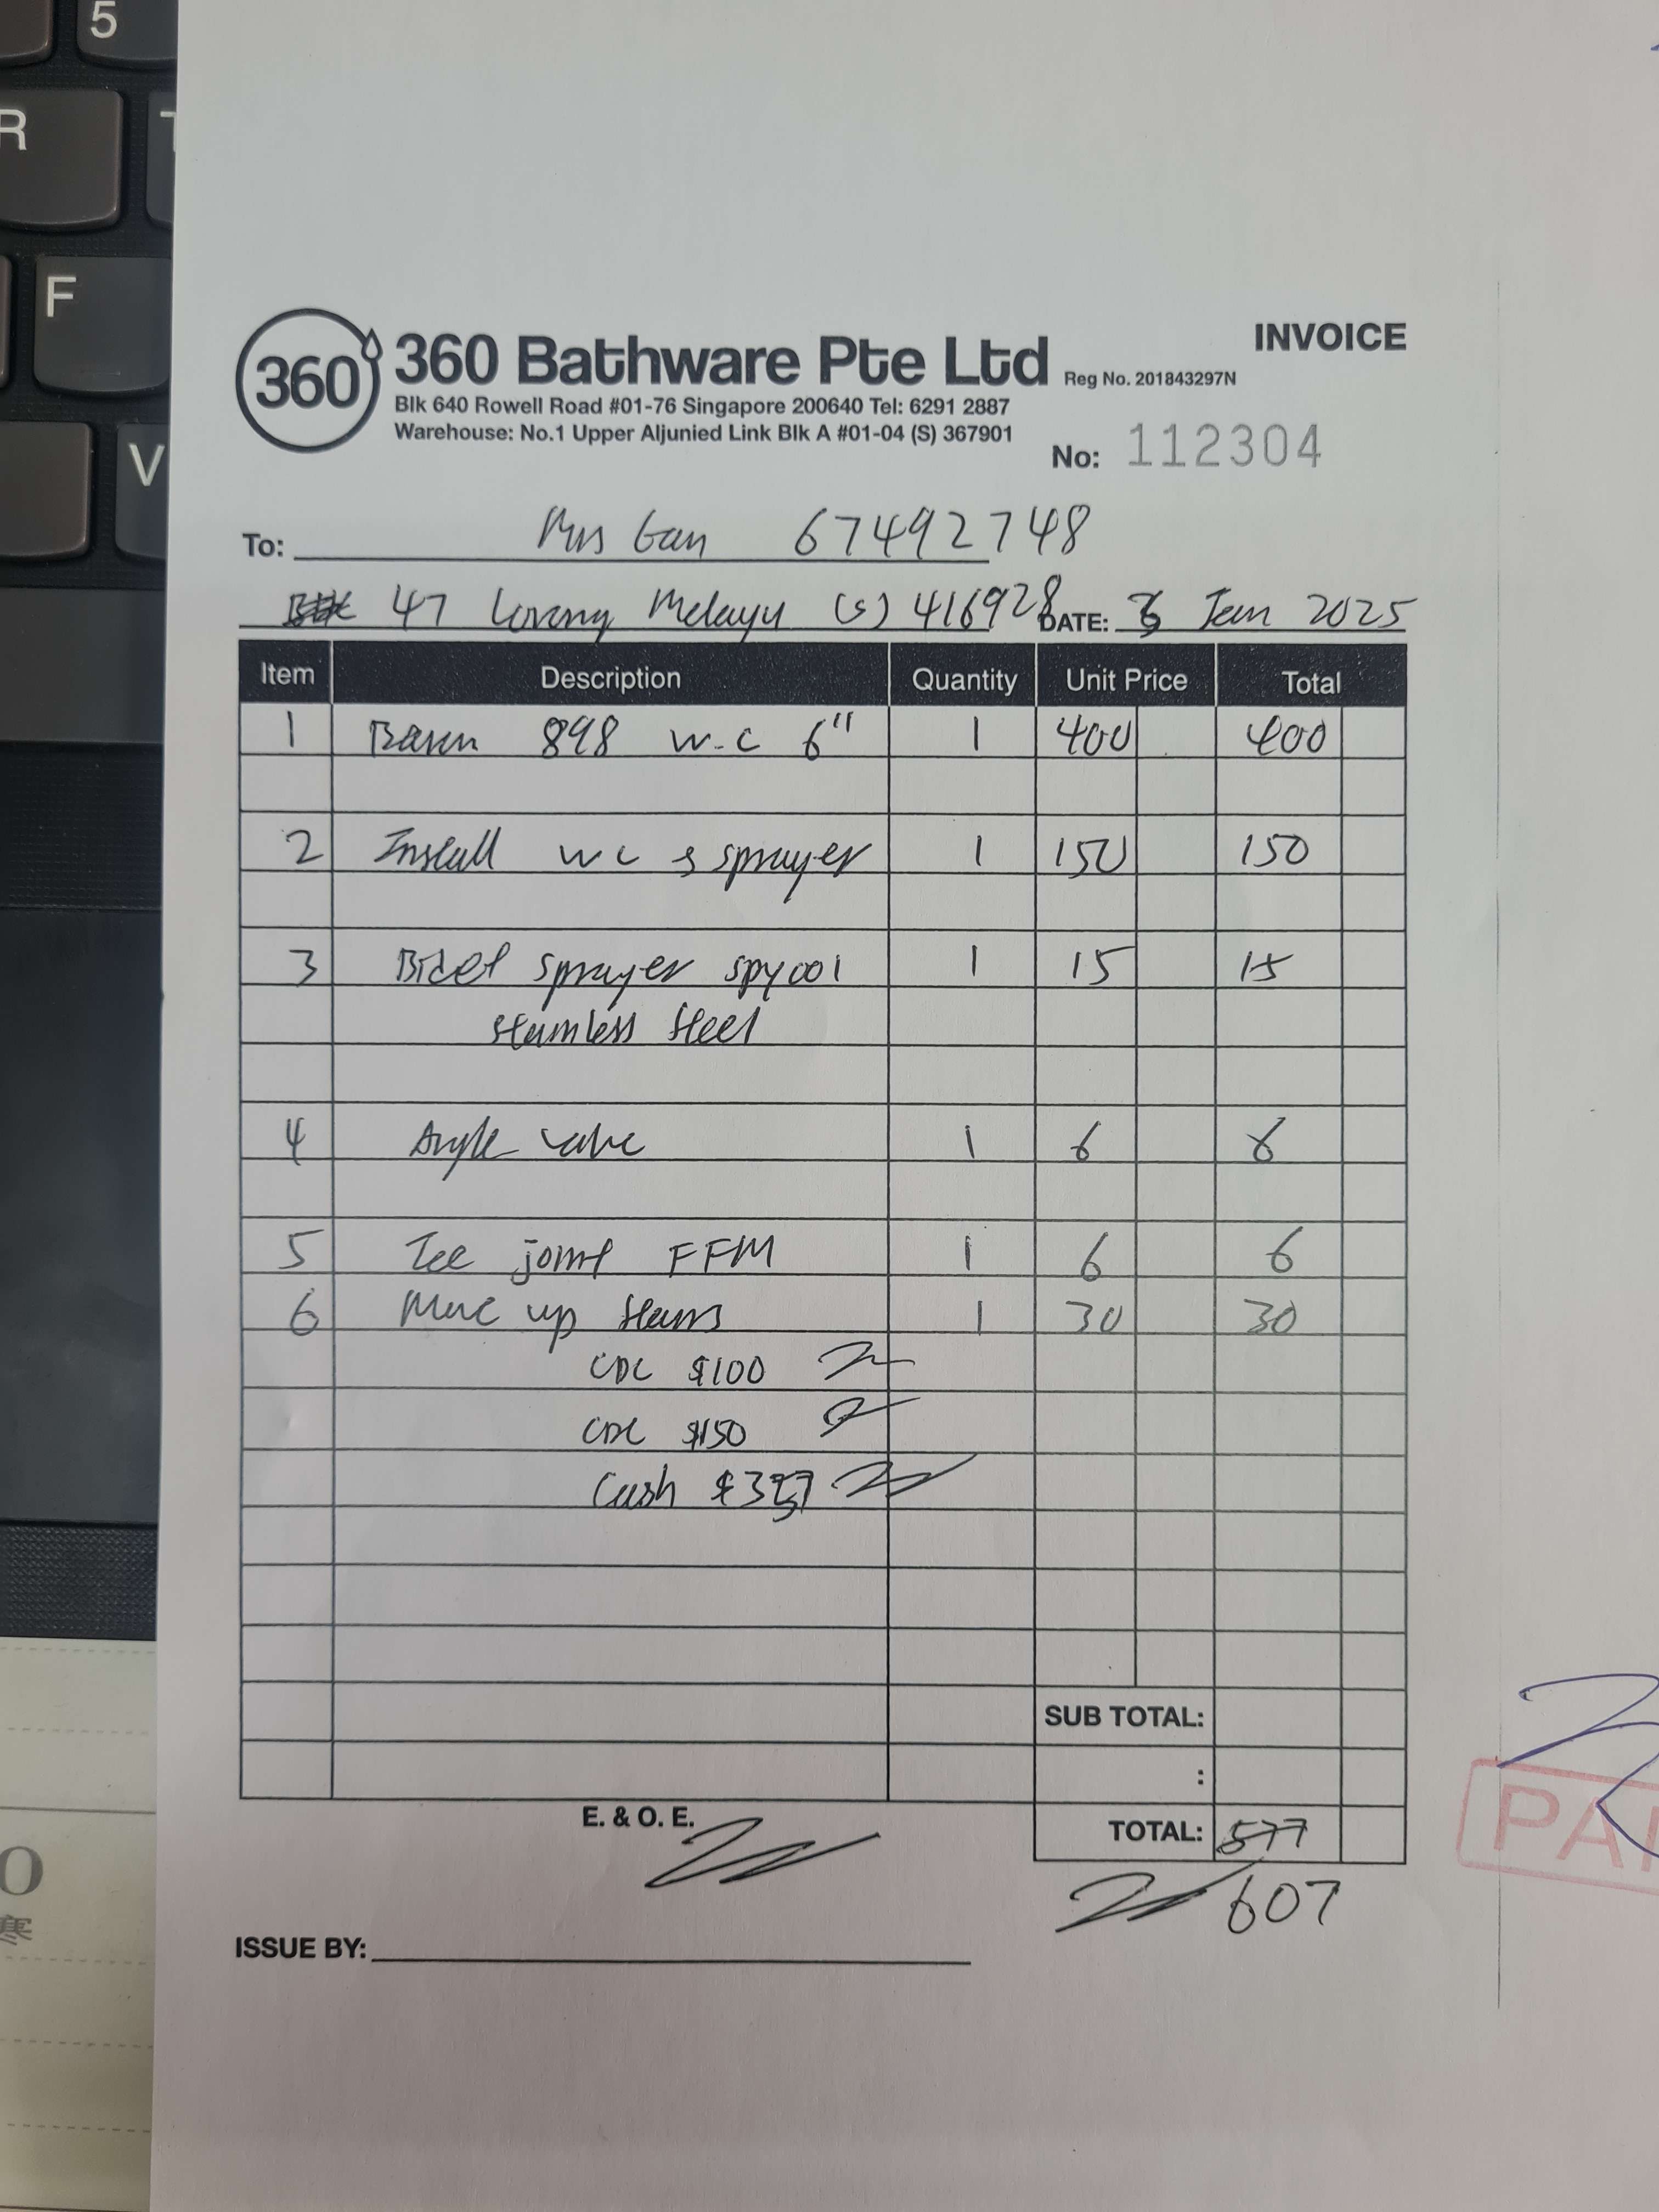 5
R
F
V
360
360 Bathware Pte Ltd Reg No. 201843297N
INVOICE
Blk 640 Rowell Road #01-76 Singapore 200640 Tel: 6291 2887
Warehouse: No.1 Upper Aljunied Link Blk A #01-04 (S) 367901
No: 112304
To: Mrs Gan 67492748
47 Lorong Melayu (S) 416928 DATE: Jan 2025
Item Description Quantity Unit Price Total
1 Baren 898 w.c 6" 1 400 400
2 Install wc & sprayer 1 150 150
3 Bidet sprayer spy001 1 15 15
stainless steel
4 Angle valve 1 6 6
5 Tee joint FFM 1 6 6
6 Move up stairs 1 30 30
CDC $100
CDC $150
Cash $357
SUB TOTAL:
:
E. & O. E.
TOTAL: 577
607
ISSUE BY:
PAI
O
寒